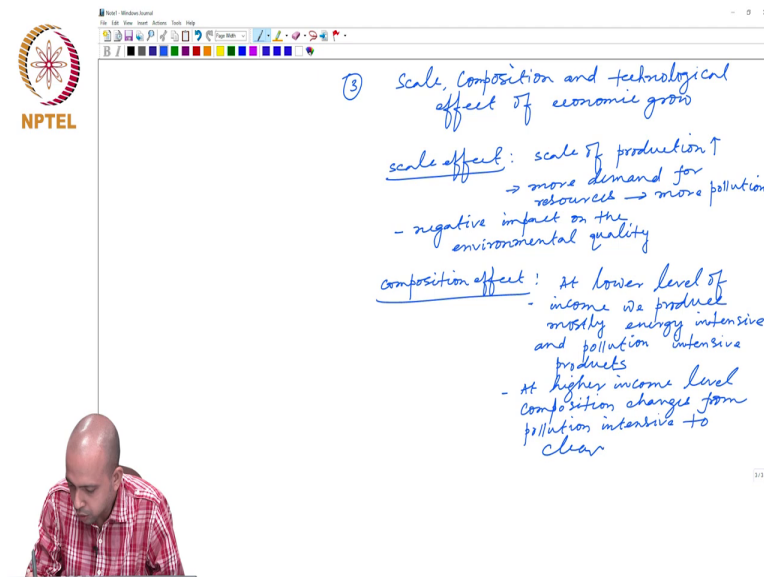 Note1 - Windows Journal
File Edit View Insert Actions Tools Help
Page Width
B I
NPTEL
③ Scale, Composition and technological
effect of economic grow
scale effect : scale of production ↑
→ more demand for
resources → more pollution
- negative impact on the
environmental quality
composition effect : At lower level of
- income we produce
mostly energy intensive
and pollution intensive
products
- At higher income level
composition changes from
pollution intensive to
clean
3/3